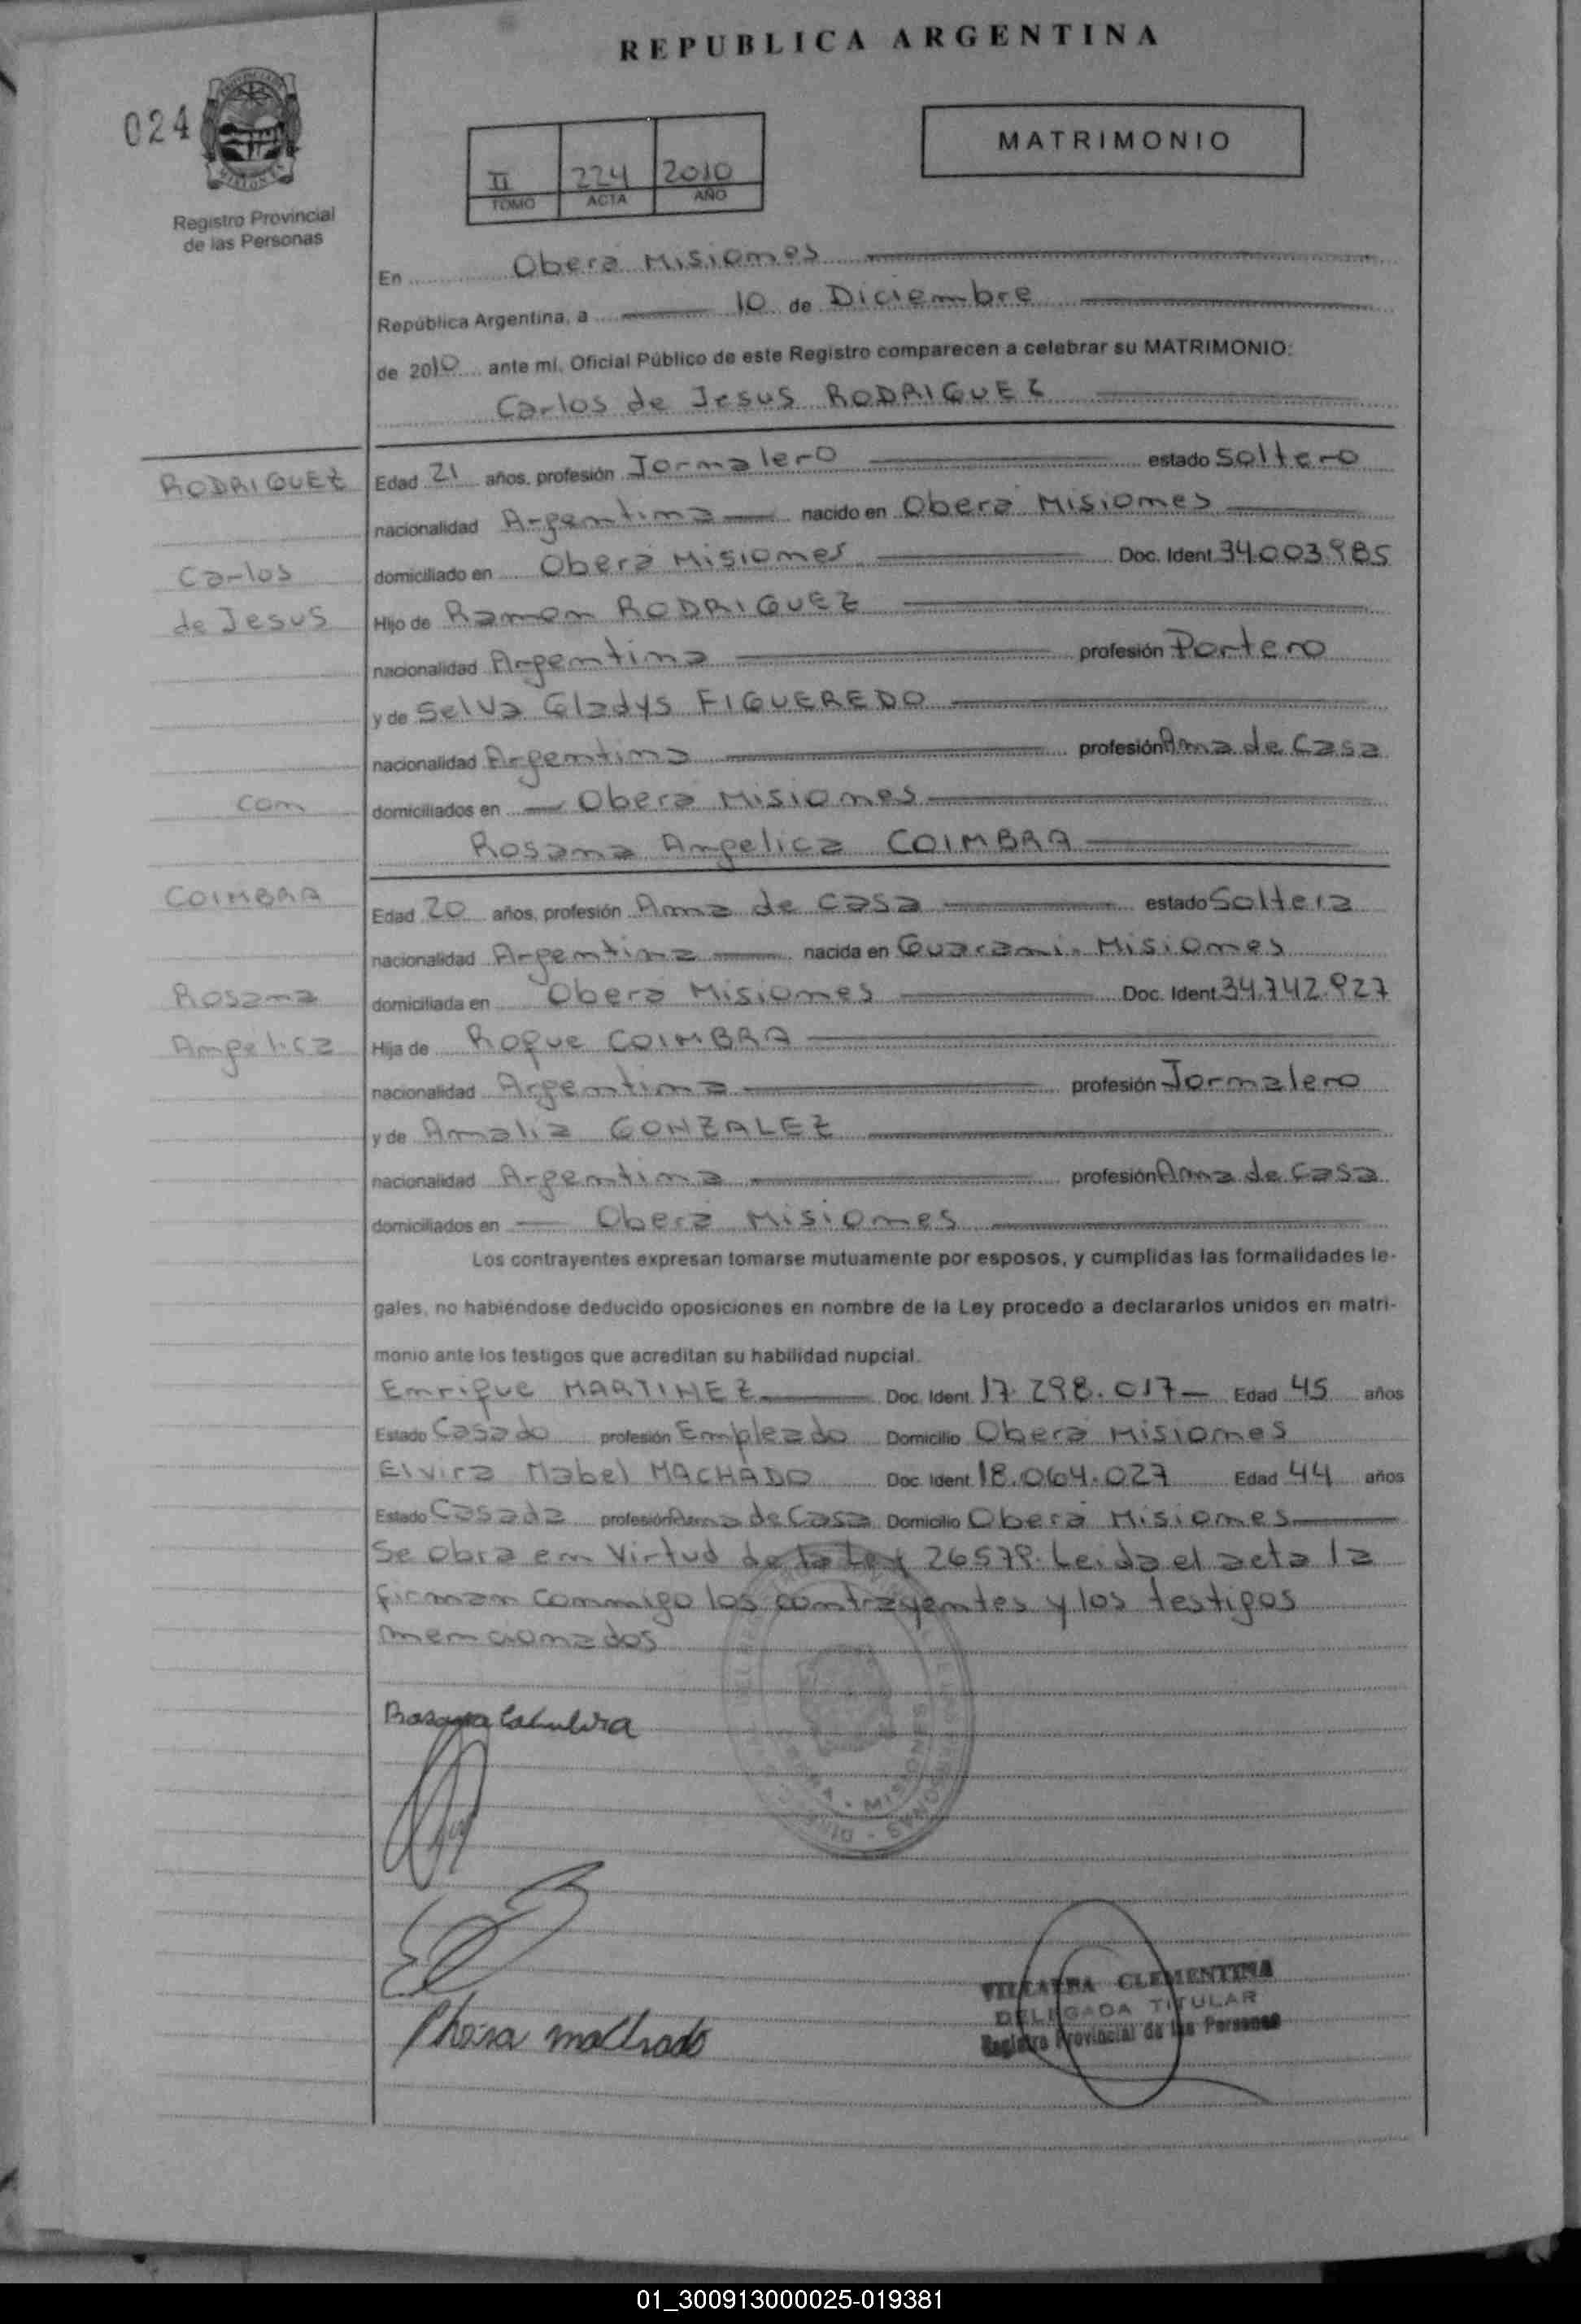 REPUBLICA ARGENTINA
024
MATRIMONIO
II 224 2010
TOMO ACTA AÑO
Registro Provincial
de las Personas
En Oberá Misiones
República Argentina, a 10 de Diciembre
de 2010 ante mí, Oficial Público de este Registro comparecen a celebrar su MATRIMONIO:
Carlos de Jesus RODRIGUEZ
RODRIGUEZ
Edad 21 años, profesión Jornalero estado Soltero
nacionalidad Argentina nacido en Oberá Misiones
Carlos
domiciliado en Oberá Misiones Doc. Ident. 34.003.985
de Jesus
Hijo de Ramon RODRIGUEZ
nacionalidad Argentina profesión Portero
y de Selva Gladys FIGUEREDO
nacionalidad Argentina profesión Ama de Casa
con
domiciliados en Oberá Misiones
Rosana Angelica COIMBRA
COIMBRA
Edad 20 años, profesión Ama de Casa estado Soltera
nacionalidad Argentina nacida en Guarani. Misiones
Rosana
domiciliada en Oberá Misiones Doc. Ident. 34.742.927
Angelica
Hija de Roque COIMBRA
nacionalidad Argentina profesión Jornalero
y de Amalia GONZALEZ
nacionalidad Argentina profesión Ama de Casa
domiciliados en Oberá Misiones
Los contrayentes expresan tomarse mutuamente por esposos, y cumplidas las formalidades le-
gales, no habiéndose deducido oposiciones en nombre de la Ley procedo a declararlos unidos en matri-
monio ante los testigos que acreditan su habilidad nupcial.
Enrique MARTINEZ Doc. Ident. 17.298.017 Edad 45 años
Estado Casado profesión Empleado Domicilio Oberá Misiones
Elvira Mabel MACHADO Doc. Ident. 18.064.027 Edad 44 años
Estado Casada profesión Ama de Casa Domicilio Oberá Misiones
Se obra en Virtud de la Ley 26579. Leida el acta la
firman conmigo los contrayentes y los testigos
mencionados
Rosana Coimbra
VILLALBA CLEMENTINA
DELEGADA TITULAR
Registro Provincial de las Personas
machado
01_300913000025-019381